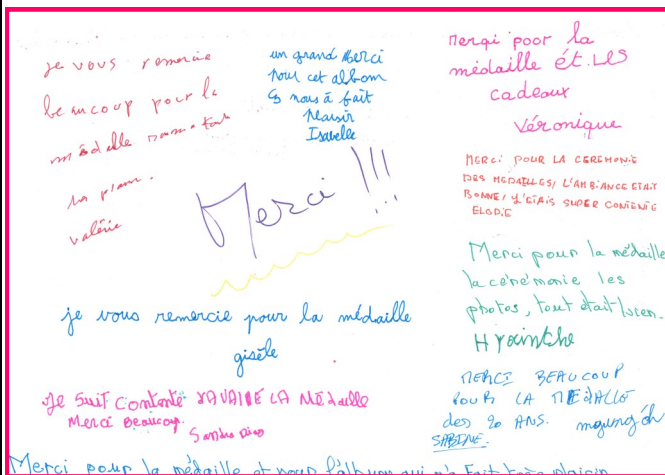 je vous remercie
beaucoup pour la
médaille
valérie
un grand Merci
pour cet albom
ç nous à fait
Plaisir
Isabelle
merçi poor la
médaille ét LES
cadeaux
Véronique
MERCI POUR LA CEREMONIE
DES MEDAILLES, L'AMBIANCE ETAIT
BONNE, J'ETAIS SUPER CONTENTE
ELODIE
Merci !!!
Merci pour la médaille
la cérémonie les
photos, tout était bien.
Hyacinthe
je vous remercie pour la médaille
gisèle
Je Suit Contante LA Médaille
Merci Beaucoup.
Sandra
MERCI BEAUCOUP
POUR LA MEDALLE
des 20 ANS.
SABINE.
Merci pour la médaille et pour l'album qui m'a Fait très plaisir